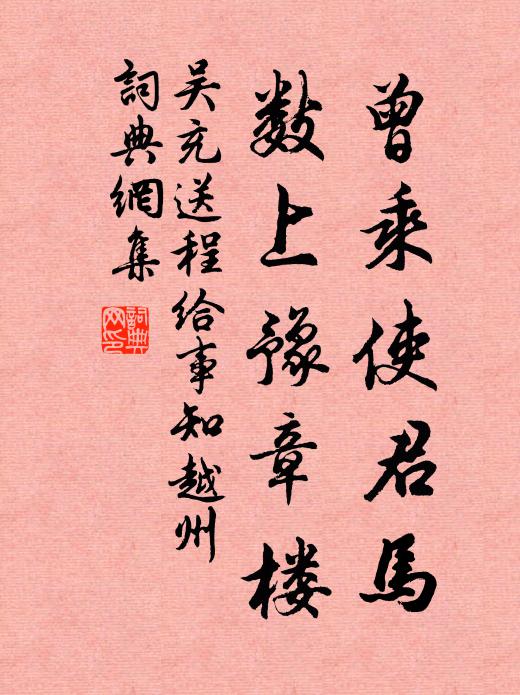 曾乘使君馬
数上豫章楼
吴充送程给事知越州
詞典網集
詞典
网印